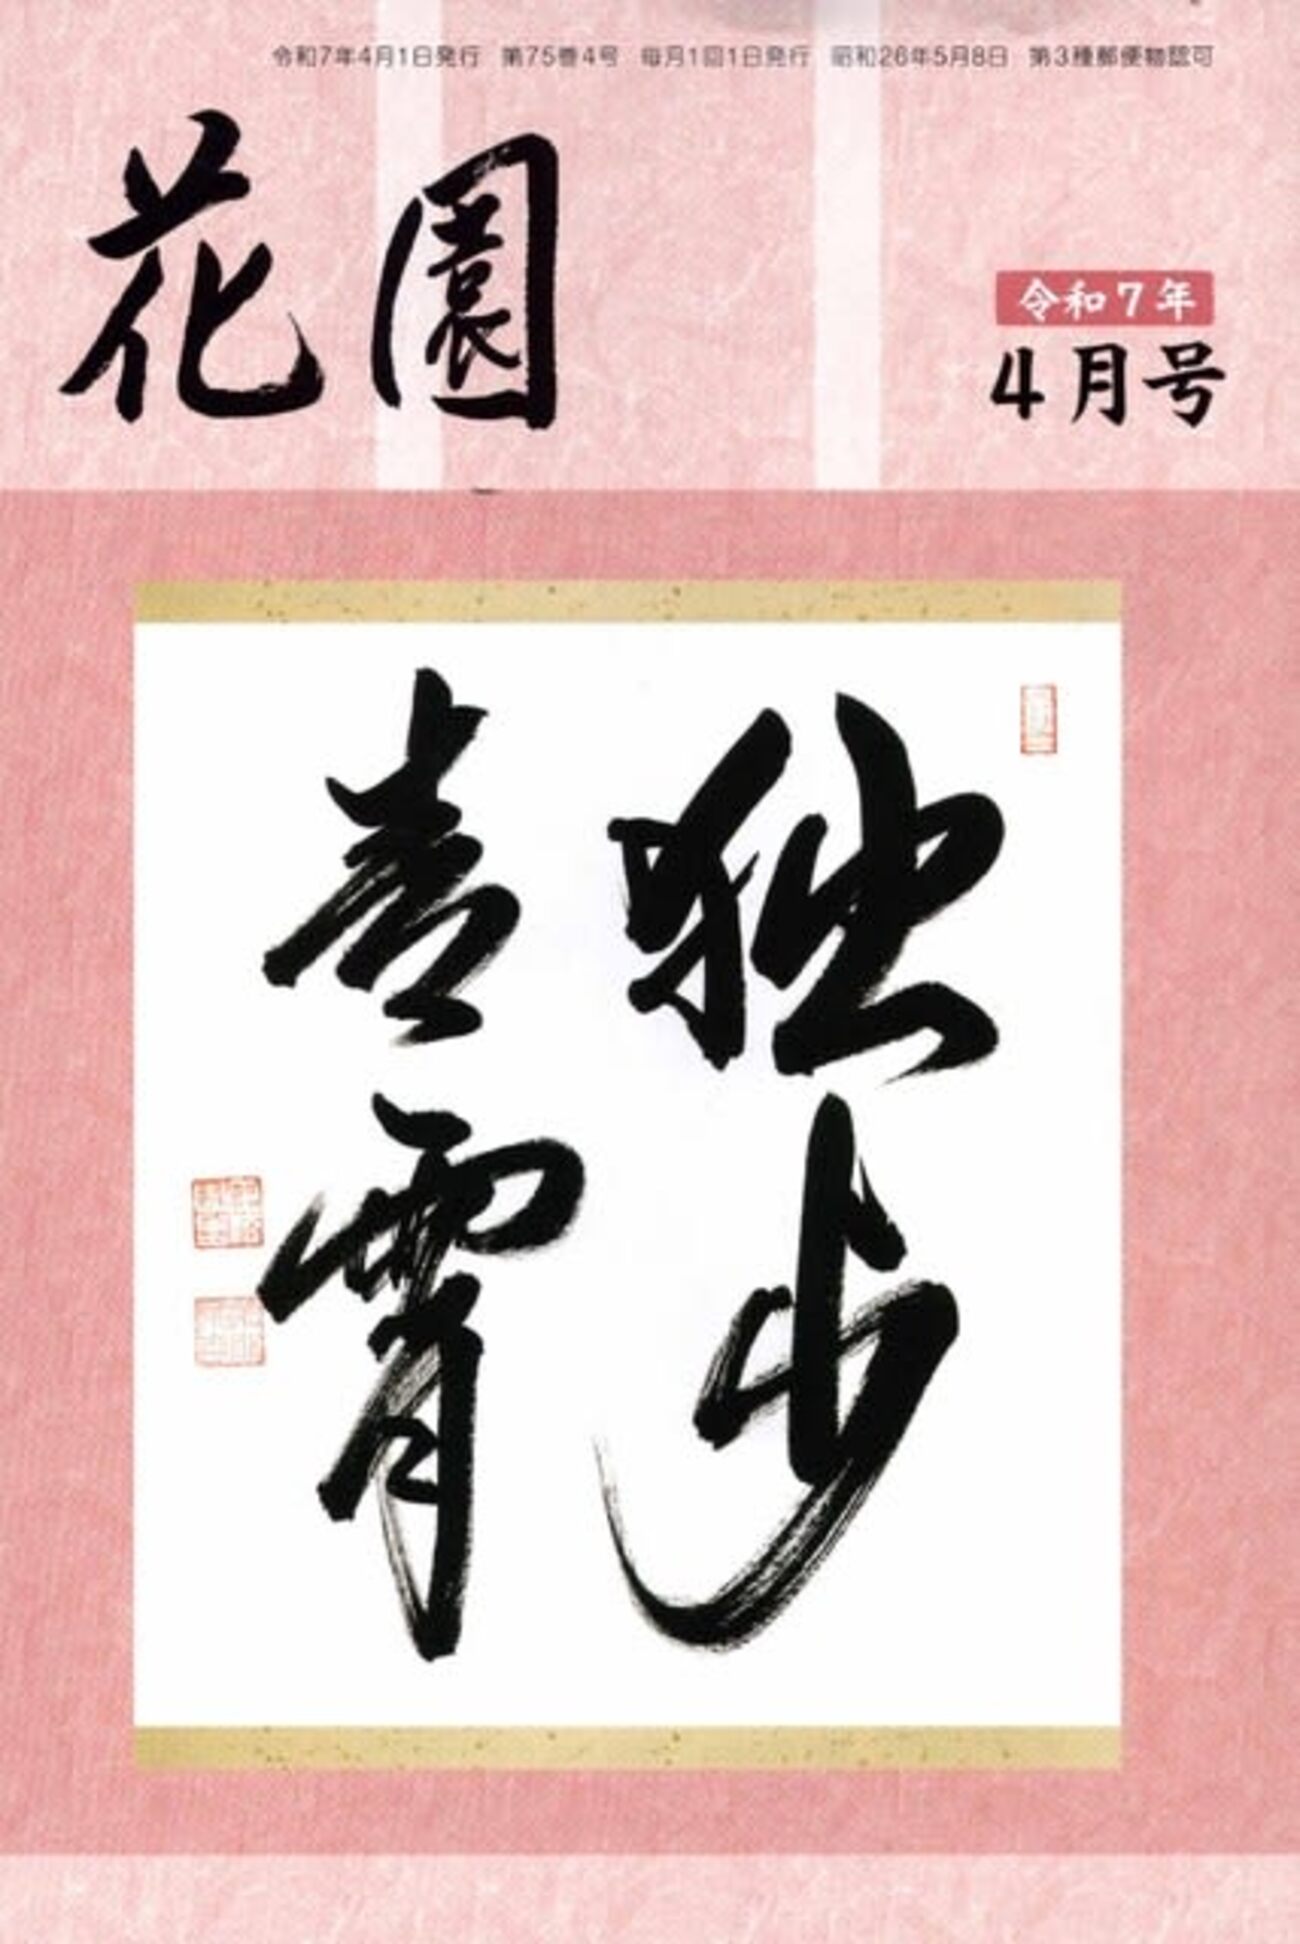 令和7年4月1日発行 第75巻4号 毎月1回1日発行 昭和26年5月8日 第3種郵便物認可
花園
令和7年
4月号
独歩
青霄